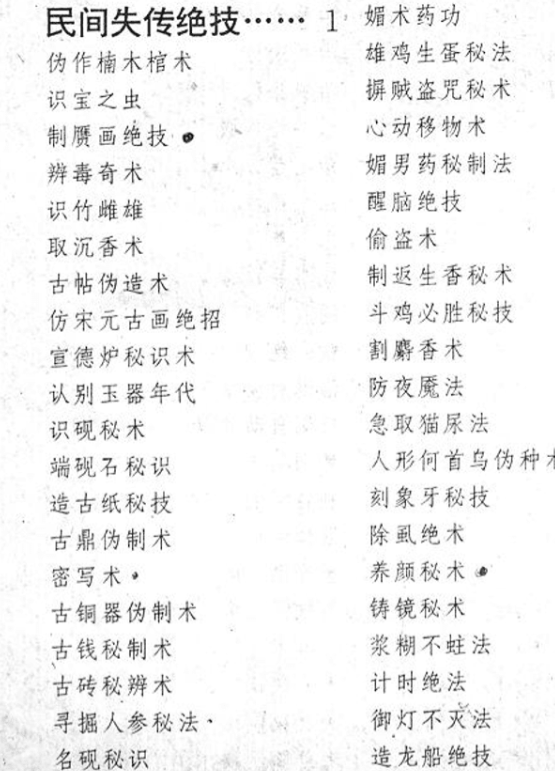 民间失传绝技…… 1
伪作楠木棺术
识宝之虫
制赝画绝技
辨毒奇术
识竹雌雄
取沉香术
古帖伪造术
仿宋元古画绝招
宣德炉秘识术
认别玉器年代
识砚秘术
端砚石秘识
造古纸秘技
古鼎伪制术
密写术
古铜器伪制术
古钱秘制术
古砖秘辨术
寻掘人参秘法
名砚秘识
媚术药功
雄鸡生蛋秘法
摒贼盗咒秘术
心动移物术
媚男药秘制法
醒脑绝技
偷盗术
制返生香秘术
斗鸡必胜秘技
割麝香术
防夜魇法
急取猫尿法
人形何首乌伪种术
刻象牙秘技
除虱绝术
养颜秘术
铸镜秘术
浆糊不蛀法
计时绝法
御灯不灭法
造龙船绝技